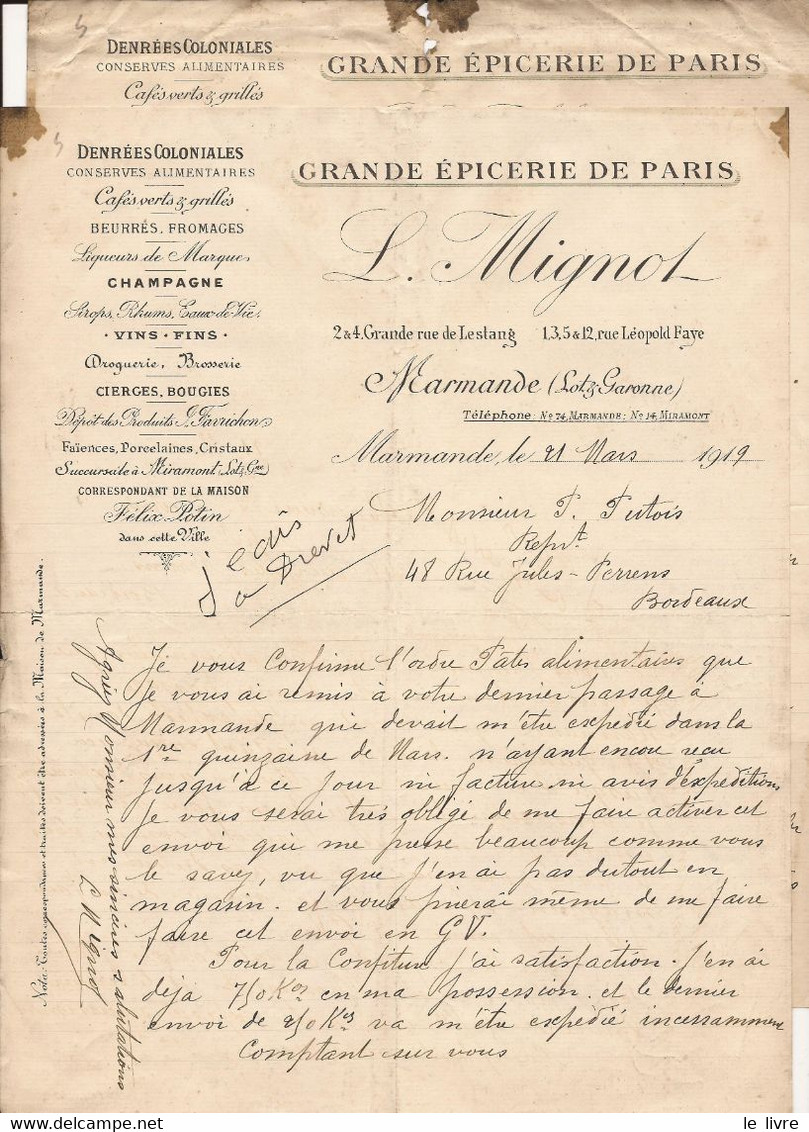 DENRÉES COLONIALES
CONSERVES ALIMENTAIRES
Cafés verts & grillés
GRANDE ÉPICERIE DE PARIS
DENRÉES COLONIALES
CONSERVES ALIMENTAIRES
Cafés verts & grillés
BEURRES, FROMAGES
Liqueurs de Marque
CHAMPAGNE
Sirops, Rhums, Eaux-de-Vie.
· VINS · FINS ·
Droguerie, Brosserie
CIERGES, BOUGIES
Dépôt des Produits J. Favrichon
Faïences, Porcelaines, Cristaux
Succursale à Miramont (Lot & Gne)
CORRESPONDANT DE LA MAISON
Félix Potin
dans cette Ville
GRANDE ÉPICERIE DE PARIS
L. Mignot
2 & 4, Grande rue de Lestang 1, 3, 5 & 12, rue Léopold Faye
Marmande (Lot & Garonne)
Téléphone: No 74, MARMANDE: No 14, MIRAMONT
Marmande, le 21 Mars 1919
Monsieur P. Putois
Reprt
48 Rue Jules-Perrens
Bordeaux
Je vous confirme l'ordre Pates alimentaires que
je vous ai remis à votre dernier passage à
Marmande qui devait m'être expedié dans la
1re quinzaine de Mars. n'ayant encore reçu
jusqu'à ce jour ni facture ni avis d'expedition
je vous serai très obligé de me faire activer cet
envoi qui me presse beaucoup comme vous
le savez, vu que j'en ai pas du tout en
magasin. et vous prierai même de me faire
faire cet envoi en GV.
Pour la Confiture j'ai satisfaction. j'en ai
deja 750 Kos en ma possession. et le dernier
envoi de 250 Kos va m'être expedié incessamment
Comptant sur vous
Agréez Monsieur mes sincères salutations
L Mignot
Nota: Toutes correspondances et traites doivent être adressées à la Maison de Marmande.
le livre